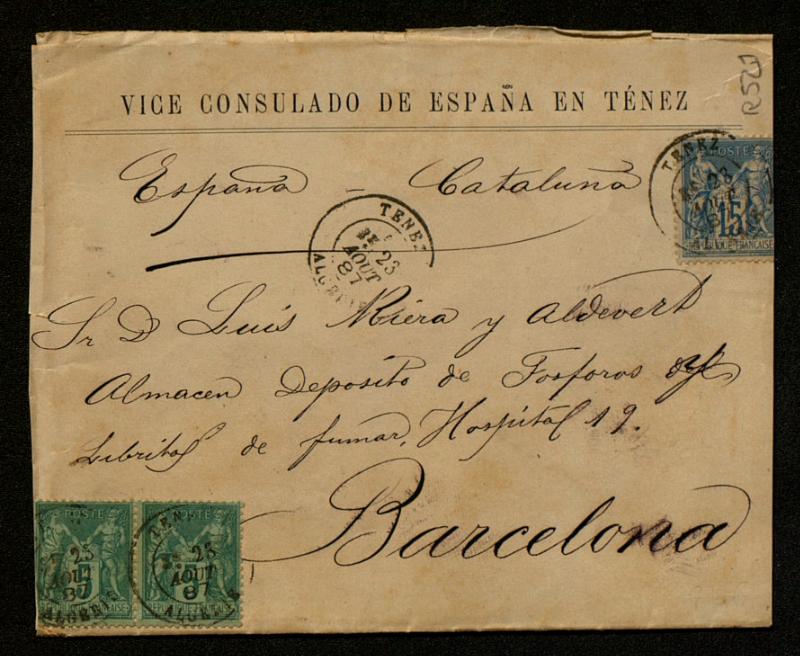 VICE CONSULADO DE ESPAÑA EN TÉNEZ
R521
España - Cataluña
TENEZ
23
AOUT
87
ALGERIE
TENEZ
23
AOUT
POSTE
15
REPUBLIQUE FRANÇAISE
Sr D Luis Riera y Aldevert
Almacen Deposito de Fosforos y
Libritos de fumar, Hospital 19.
Barcelona
POSTE
5
REPUBLIQUE FRANÇAISE
25
AOUT
87
ALGERIE
POSTE
5
REPUBLIQUE FRANÇAISE
TENEZ
25
AOUT
87
ALGERIE